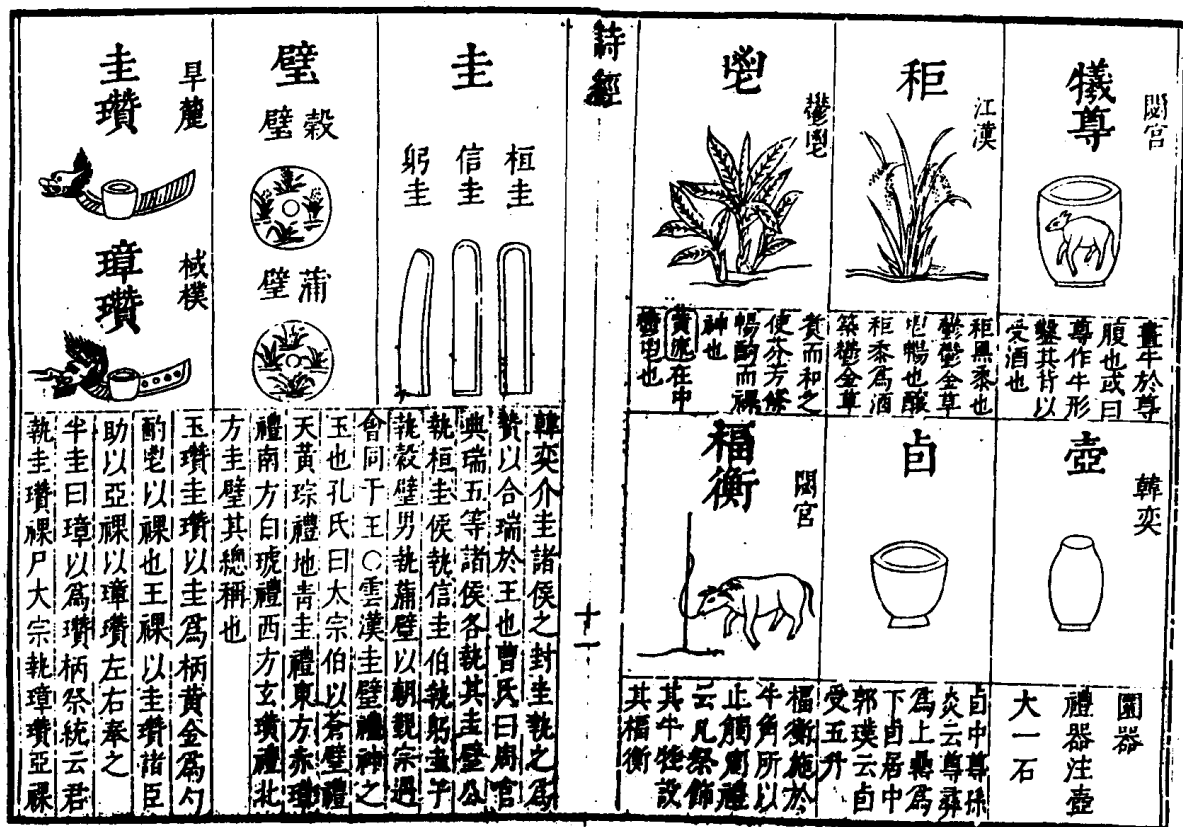 閟宮
犧尊
畫牛於尊
腹也或曰
尊作牛形
鑿其背以
受酒也
江漢
秬
秬黑黍也
鬱鬱金草
鬯暢也釀
秬黍為酒
築鬱金草
鬱鬯
鬯
煑而和之
使芬芳條
暢酌而祼
神也
黃流在中
鬱鬯也
韓奕
壺
圜器
禮器注壺
大一石
卣
卣中尊孫
炎云尊彞
為上罍為
下卣居中
郭璞云卣
受五升
閟宮
福衡
福衡施於
牛角所以
止觸周禮
云凡祭飾
其牛牲設
其福衡
詩經
十一
圭
桓圭
信圭
躬圭
韓奕介圭諸侯之封圭執之為
贄以合瑞於王也曹氏曰周官
典瑞五等諸侯各執其圭璧公
執桓圭侯執信圭伯執躬圭子
執穀璧男執蒲璧以朝覲宗遇
會同于王○雲漢圭璧禮神之
玉也孔氏曰太宗伯以蒼璧禮
天黃琮禮地青圭禮東方赤璋
禮南方白琥禮西方玄璜禮北
方圭璧其總稱也
璧
穀璧
蒲璧
旱麓
圭瓚
棫樸
璋瓚
玉瓚圭瓚以圭為柄黃金為勺
酌鬯以祼也王祼以圭瓚諸臣
助以亞祼以璋瓚左右奉之
半圭曰璋以為瓚柄祭統云君
執圭瓚祼尸大宗執璋瓚亞祼